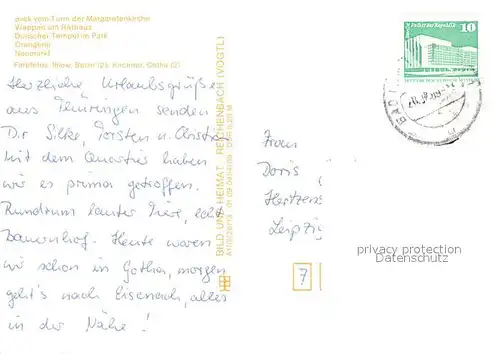 Blick vom Turm der Margarethenkirche
Wappen am Rathaus
Dorischer Tempel im Park
Orangerie
Neumarkt
Farbfotos: Ihlow, Berlin (2); Kirchner, Gotha (2)
Herzliche Urlaubsgrüße
aus Thüringen senden
Dir Silke, Torsten u. Christin
Mit dem Quartier haben
wir es prima getroffen.
Rundrum lauter Tiere, echt
Bauernhof. Heute waren
wir schon in Gotha, morgen
geht's nach Eisenach, alles
in der Nähe!
BILD UND HEIMAT REICHENBACH (VOGTL)
10
Frau
Doris
Leipzig
7
privacy protection
Datenschutz